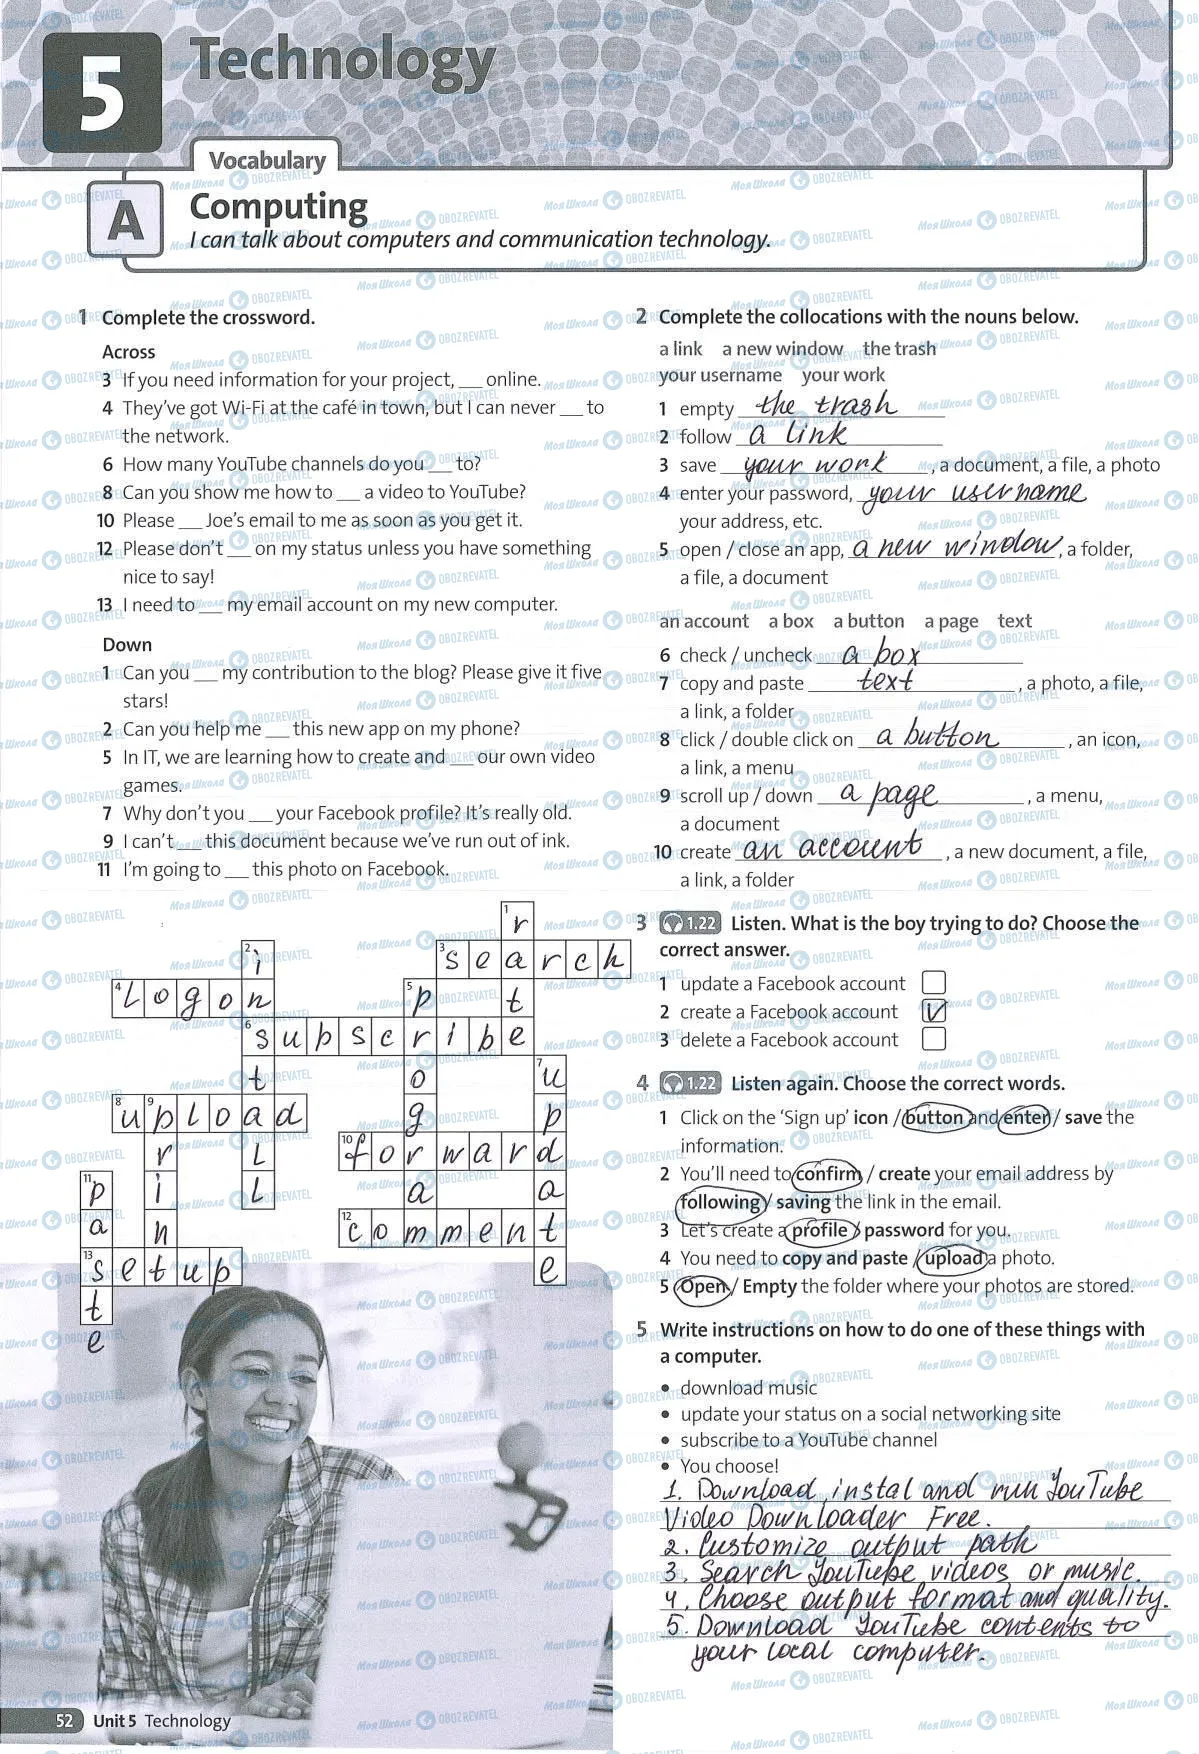 5
Technology
Vocabulary
A
Computing
I can talk about computers and communication technology.
1 Complete the crossword.
Across
3 If you need information for your project, __ online.
4 They've got Wi-Fi at the café in town, but I can never __ to
the network.
6 How many YouTube channels do you __ to?
8 Can you show me how to __ a video to YouTube?
10 Please __ Joe's email to me as soon as you get it.
12 Please don't __ on my status unless you have something
nice to say!
13 I need to __ my email account on my new computer.
Down
1 Can you __ my contribution to the blog? Please give it five
stars!
2 Can you help me __ this new app on my phone?
5 In IT, we are learning how to create and __ our own video
games.
7 Why don't you __ your Facebook profile? It's really old.
9 I can't __ this document because we've run out of ink.
11 I'm going to __ this photo on Facebook.
1 rate
2 install
3 search
4 logon
5 program
6 subscribe
7 update
8 upload
9 print
10 forward
11 paste
12 comment
13 setup
2 Complete the collocations with the nouns below.
a link a new window the trash
your username your work
1 empty the trash
2 follow a link
3 save your work, a document, a file, a photo
4 enter your password, your username
your address, etc.
5 open / close an app, a new window, a folder,
a file, a document
an account a box a button a page text
6 check / uncheck a box
7 copy and paste text, a photo, a file,
a link, a folder
8 click / double click on a button, an icon,
a link, a menu
9 scroll up / down a page, a menu,
a document
10 create an account, a new document, a file,
a link, a folder
3 1.22 Listen. What is the boy trying to do? Choose the
correct answer.
1 update a Facebook account
2 create a Facebook account V
3 delete a Facebook account
4 1.22 Listen again. Choose the correct words.
1 Click on the 'Sign up' icon / button and enter / save the
information.
2 You'll need to confirm / create your email address by
following / saving the link in the email.
3 Let's create a profile / password for you.
4 You need to copy and paste / upload a photo.
5 Open / Empty the folder where your photos are stored.
5 Write instructions on how to do one of these things with
a computer.
• download music
• update your status on a social networking site
• subscribe to a YouTube channel
• You choose!
1. Download, instal and run YouTube
Video Downloader Free.
2. Customize output path
3. Search YouTube videos or music.
4. Choose output format and quality.
5. Download YouTube contents to
your local computer.
52 Unit 5 Technology
Моя Школа OBOZREVATEL